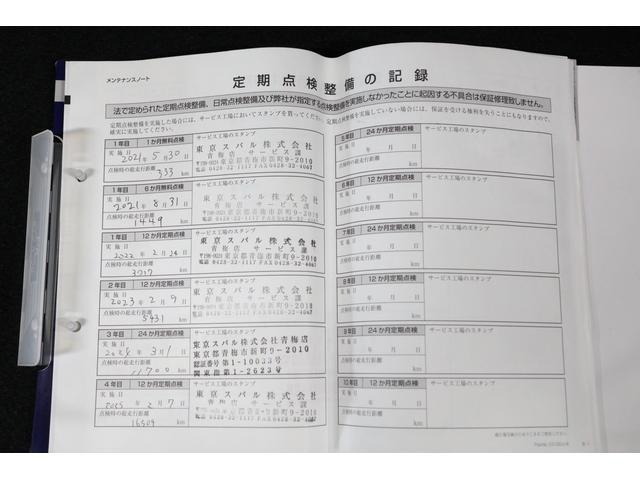 メンテナンスノート
定期点検整備の記録
法で定められた定期点検整備、日常点検整備及び弊社が指定する点検整備を実施しなかったことに起因する不具合は保証修理致しません。
定期点検整備を実施した場合には、サービス工場においてスタンプを貰ってください。
定期点検整備を実施していない場合には、保証を受ける権利を失うことにもなりますので、
確実に実施してください。
1年目 1か月無料点検 サービス工場のスタンプ
実施日
2021年5月30日
点検時の総走行距離
333 km
東京スバル株式会社
青梅店 サービス課
〒198-0024 東京都青梅市新町9-2010
電話 0428-32-1117 FAX 0428-32-4067
1年目 6か月無料点検 サービス工場のスタンプ
実施日
2021年8月31日
点検時の総走行距離
1449 km
東京スバル株式会社
青梅店 サービス課
〒198-0024 東京都青梅市新町9-2010
電話 0428-32-1117 FAX 0428-32-4067
1年目 12か月定期点検 サービス工場のスタンプ
実施日
2022年2月
点検時の総走行距離
km
東京スバル株式会社
青梅店 サービス課
〒198-0024 東京都青梅市新町9-2010
電話 0428-32-1117 FAX 0428-32-4067
2年目 12か月定期点検 サービス工場のスタンプ
実施日
2023年2月9日
点検時の総走行距離
5431 km
東京スバル株式会社
青梅店 サービス課
〒198-0024 東京都青梅市新町9-2010
電話 0428-32-1117 FAX 0428-32-4067
3年目 24か月定期点検 サービス工場のスタンプ
実施日
2024年3月1日
点検時の総走行距離
11700 km
東京スバル株式会社青梅店
東京都青梅市新町9-2010
認証番号第1-10033号
関東指第1-2623号
4年目 12か月定期点検 サービス工場のスタンプ
実施日
2025年2月7日
点検時の総走行距離
16509 km
東京スバル株式会社
青梅店 サービス課
東京都青梅市新町9-2010
電話 0428-32-1117 FAX 0428-32-4067
5年目 24か月定期点検 サービス工場のスタンプ
実施日
年 月 日
点検時の総走行距離
km
6年目 12か月定期点検 サービス工場のスタンプ
実施日
年 月 日
点検時の総走行距離
km
7年目 24か月定期点検 サービス工場のスタンプ
実施日
年 月 日
点検時の総走行距離
km
8年目 12か月定期点検 サービス工場のスタンプ
実施日
年 月 日
点検時の総走行距離
km
9年目 24か月定期点検 サービス工場のスタンプ
実施日
年 月 日
点検時の総走行距離
km
10年目 12か月定期点検 サービス工場のスタンプ
実施日
年 月 日
点検時の総走行距離
km